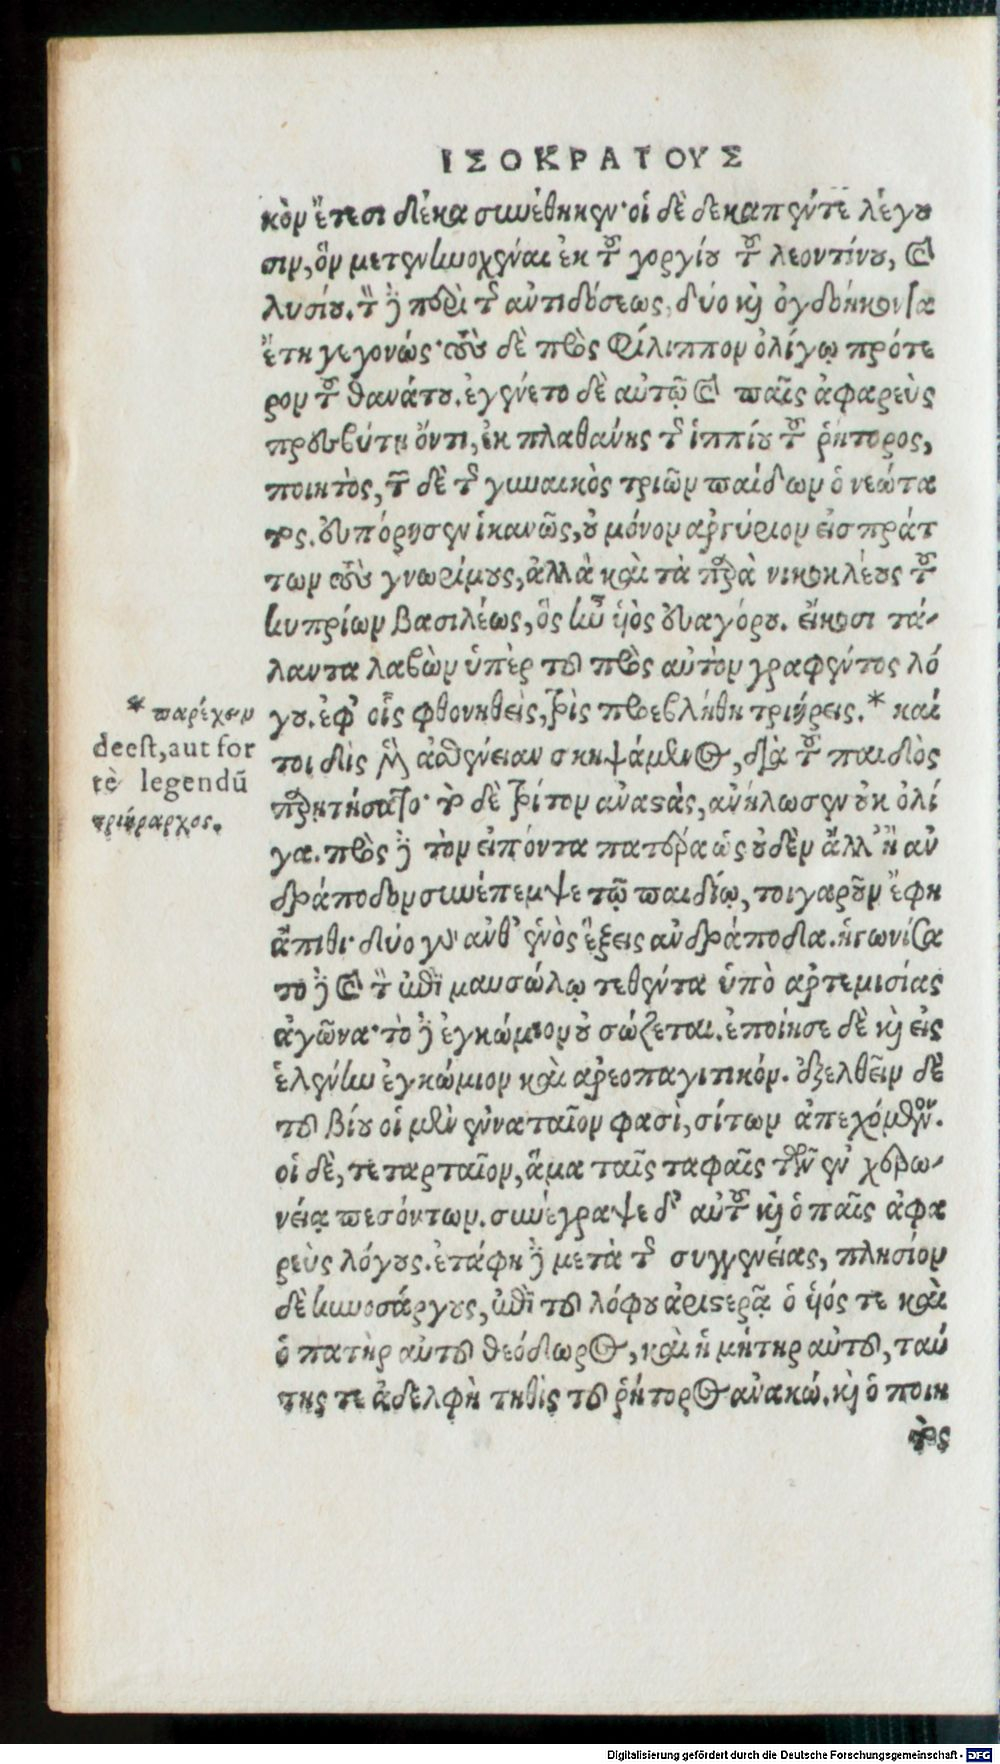 ΙΣΟΚΡΑΤΟΥΣ
κὸν ἔτεσι δέκα συνέθηκεν· οἱ δὲ δεκαπέντε λέγου
σιν, ὃν μετενηνοχέναι ἐκ τοῦ γοργίου τοῦ λεοντίνου, καὶ
λυσίου. τὸν δὲ περὶ τῆς ἀντιδόσεως, δύο καὶ ὀγδοήκοντα
ἔτη γεγονώς· τοὺς δὲ πρὸς Φίλιππον ὀλίγῳ πρότε
ρον τοῦ θανάτου. ἐγένετο δὲ αὐτῷ καὶ παῖς ἀφαρεὺς
πρεσβύτῃ ὄντι, ἐκ πλαθάνης τῆς ἱππίου τοῦ ῥήτορος,
ποιητὸς, τῶν δὲ τῆς γυναικὸς τριῶν παίδων ὁ νεώτα
τος. εὐπόρησεν ἱκανῶς, οὐ μόνον ἀργύριον εἰσπράτ
των τοὺς γνωρίμους, ἀλλὰ καὶ τὰ παρὰ νικοκλέους τοῦ
κυπρίων βασιλέως, ὃς ἦν υἱὸς εὐαγόρου. εἴκοσι τά-
λαντα λαβὼν ὑπὲρ τοῦ πρὸς αὐτὸν γραφέντος λό
γου. ἐφ' οἷς φθονηθεὶς, τρὶς προεβλήθη τριήρεις.* καί
τοι δὶς μὲν ἀσθένειαν σκηψάμενος, διὰ τοῦ παιδὸς
παρῃτήσατο· τὸ δὲ τρίτον ἀναστὰς, ἀνήλωσεν οὐκ ὀλί
γα. πρὸς δὲ τὸν εἰπόντα πατέρα ὡς οὐδὲν ἄλλ' ἢ ἀν
δράποδον συνέπεμψε τῷ παιδίῳ, τοιγαροῦν ἔφη
ἄπιθι· δύο γὰρ ἀνθ' ἑνὸς ἕξεις ἀνδράποδα. ἠγωνίσα
το δὲ καὶ τὸν ἐπὶ μαυσώλῳ τεθέντα ὑπὸ ἀρτεμισίας
ἀγῶνα· τὸ δὲ ἐγκώμιον οὐ σώζεται. ἐποίησε δὲ καὶ εἰς
ἑλένην ἐγκώμιον καὶ ἀρεοπαγιτικόν. ἐξελθεῖν δὲ
τοῦ βίου οἱ μὲν ἐνναταῖον φασὶ, σίτων ἀπεχόμενον.
οἱ δὲ, τεταρταῖον, ἅμα ταῖς ταφαῖς τῶν ἐν χερω-
νείᾳ πεσόντων. συνέγραψε δ' αὐτοῦ καὶ ὁ παῖς ἀφα
ρεὺς λόγους. ἐτάφη δὲ μετὰ τῆς συγγενείας, πλησίον
δὲ κυνοσάργους, ἐπὶ τοῦ λόφου ἀριστερᾷ ὁ υἱός τε καὶ
ὁ πατὴρ αὐτοῦ θεόδωρος, καὶ ἡ μήτηρ αὐτοῦ, ταύ
της τε ἀδελφὴ τηθὶς τοῦ ῥήτορος ἀνακώ. καὶ ὁ ποιη
τὸς
* παρέχειν
deest, aut for
tè legendū
τριήραρχος.
Digitalisierung gefördert durch die Deutsche Forschungsgemeinschaft - DFG